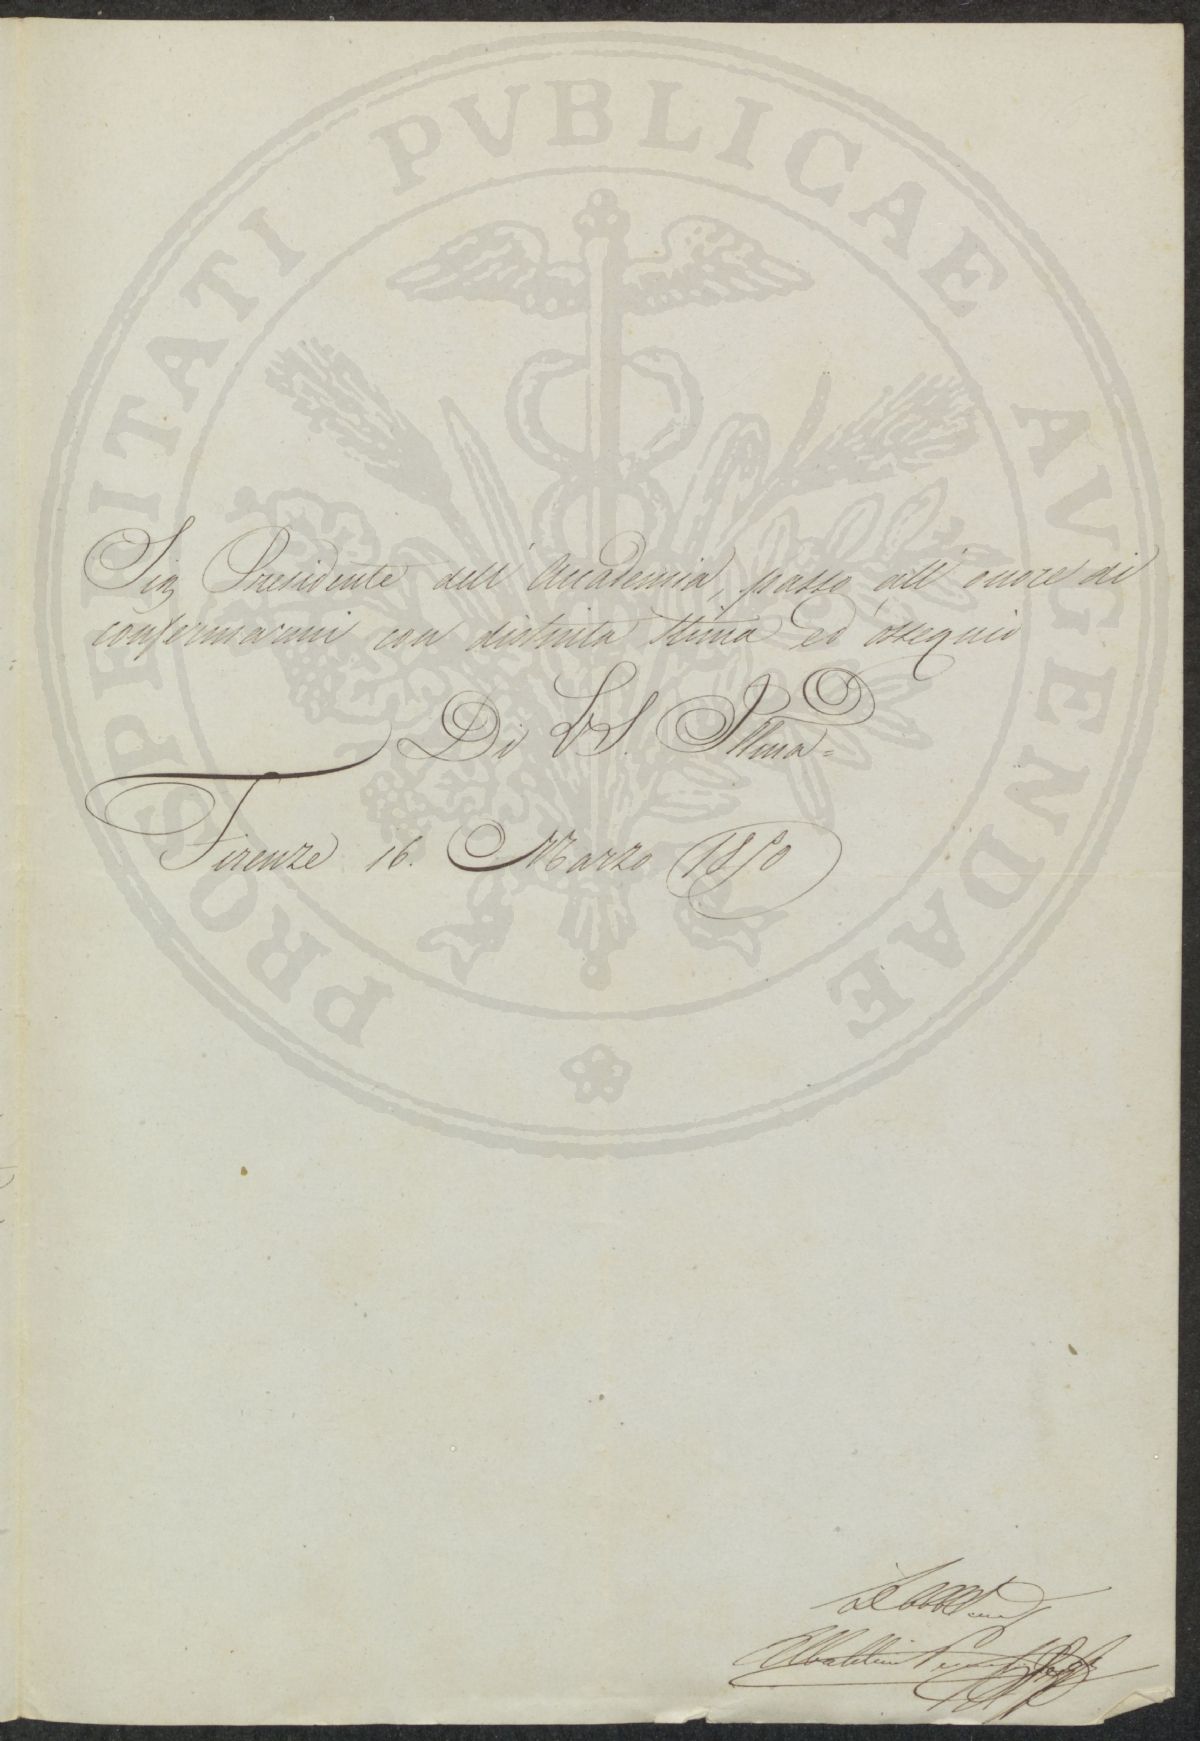 PROSPERITATI PVBLICAE AVGENDAE
Sig Presidente dell' Accademia, passo all' onore di
confermarmi con distinta stima ed ossequio
Di VS. Illma=
Firenze 16. Marzo 1850